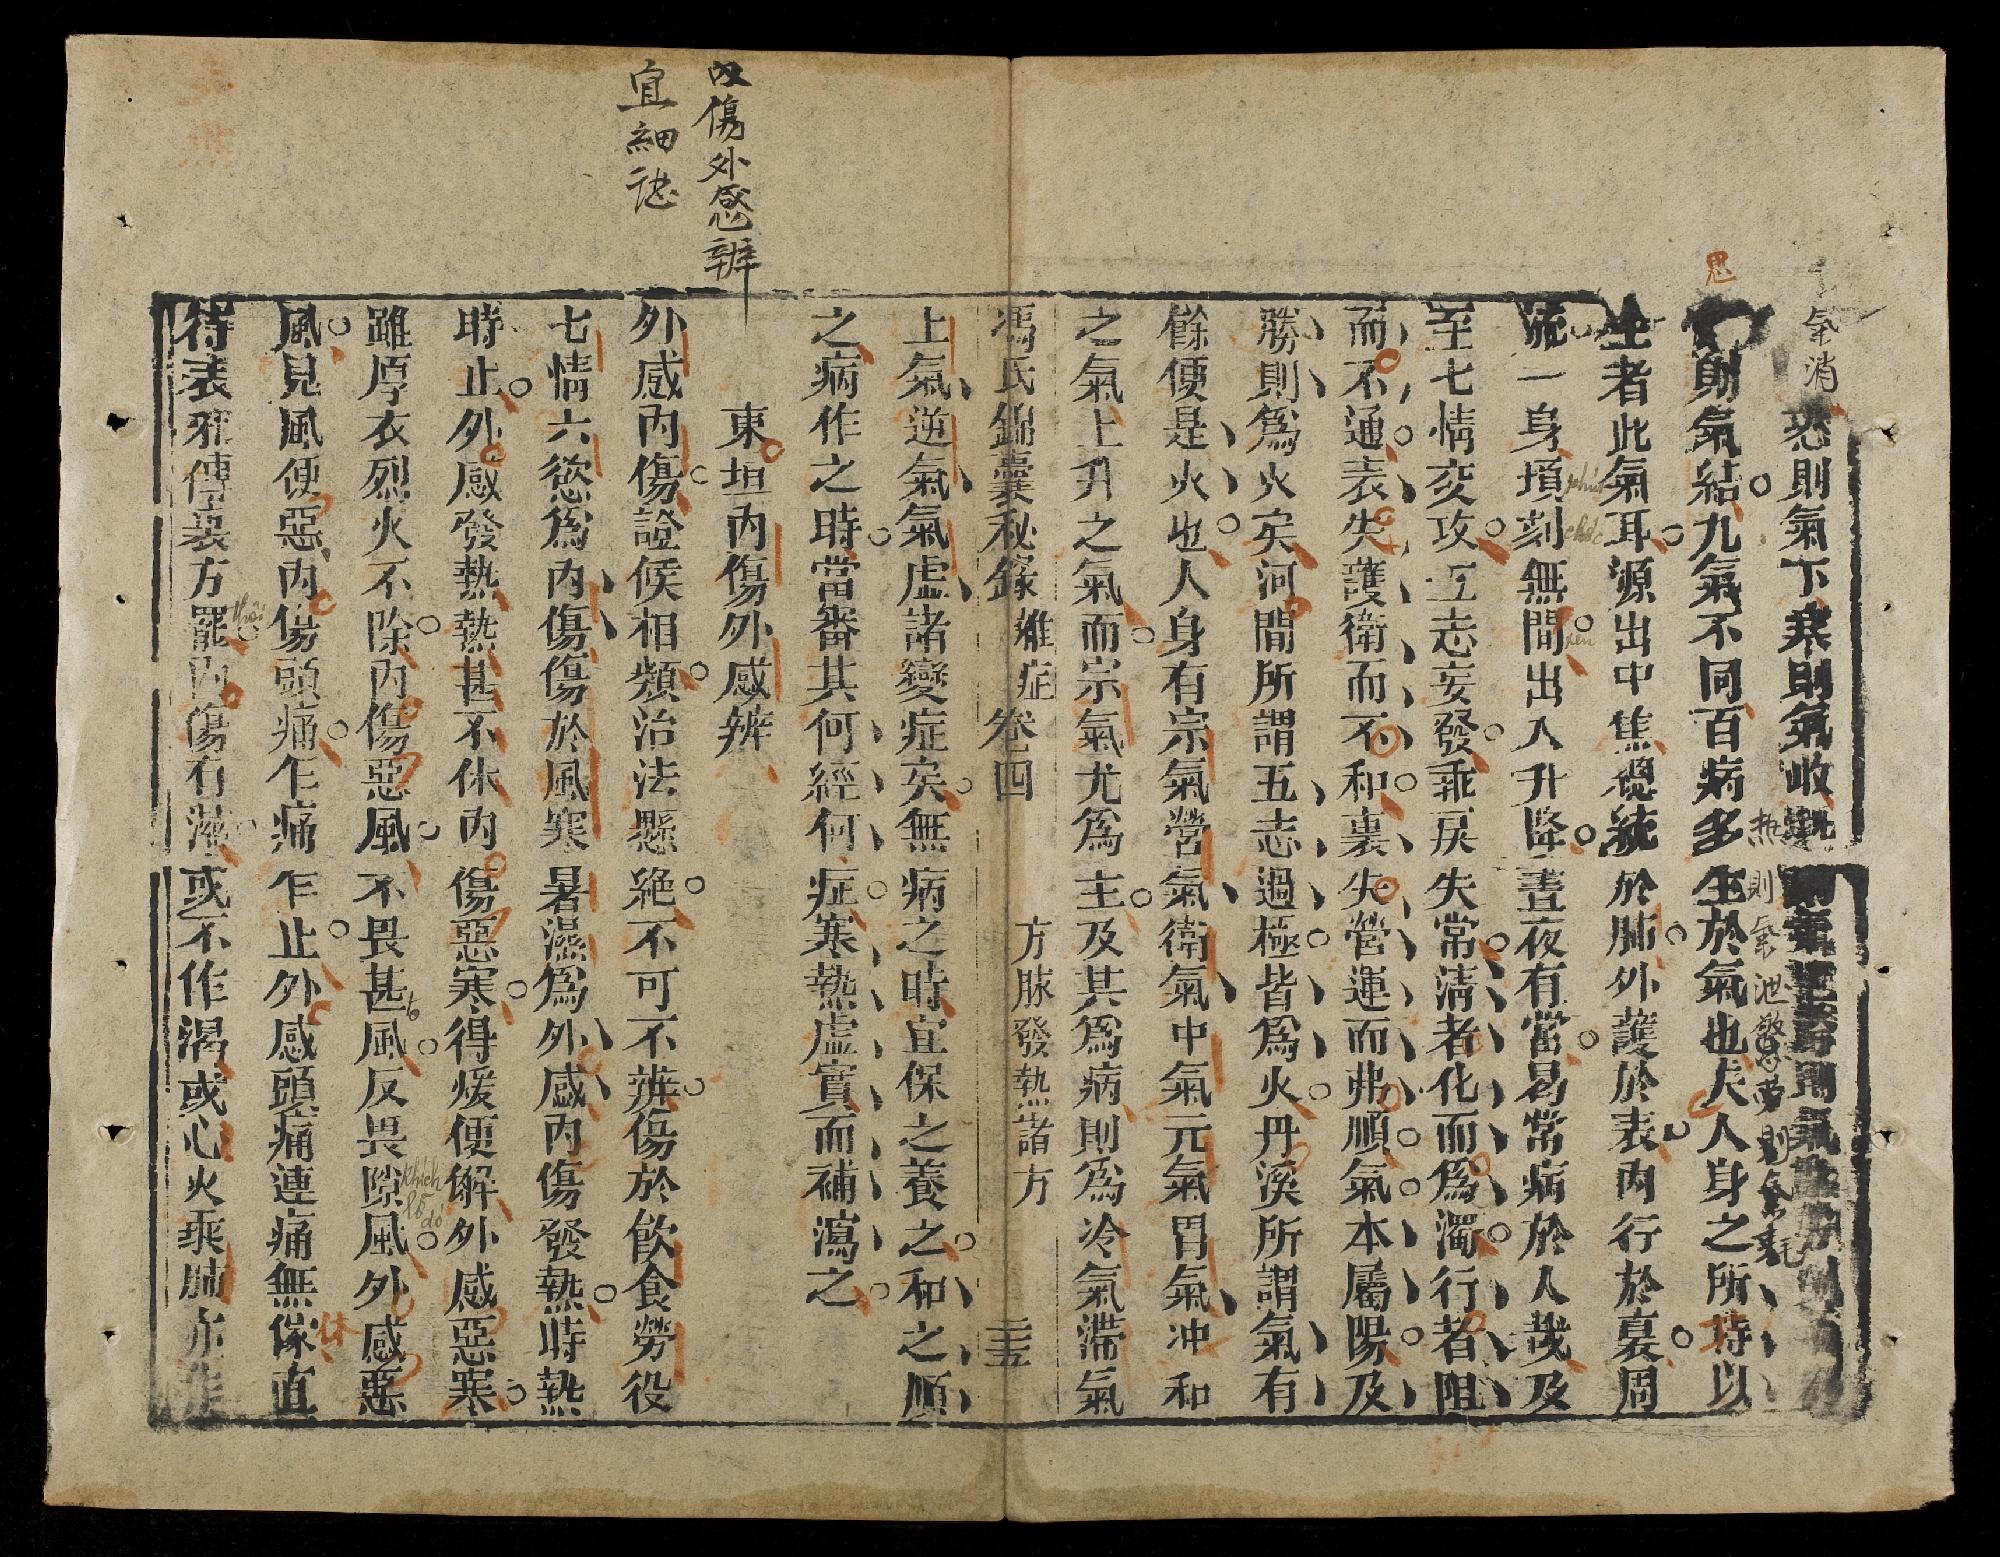 氣消
恐則氣下寒則氣收
熱則氣泄驚則氣乱勞則氣耗
思
則氣結九氣不同百病多生於氣也夫人身之所恃以
生者此氣耳源出中焦總統於肺外護於表內行於裏周
流一身頃刻無間出入升降晝夜有常曷常病於人哉及
至七情交攻五志妄發乖戾失常清者化而爲濁行者阻
而不通表失護衛而不和裏失營運而弗順氣本屬陽及
勝則爲火矣河間所謂五志過極皆爲火丹溪所謂氣有
餘便是火也人身有宗氣營氣衛氣中氣元氣胃氣冲和
之氣上升之氣而宗氣尤爲主及其爲病則爲冷氣滯氣
馮氏錦囊秘錄 雜症 卷四 方脉發熱諸方 三十五
上氣逆氣氣虛諸變症矣無病之時宜保之養之和之順
之病作之時當審其何經何症寒熱虛實而補瀉之
東垣內傷外感辨
內傷外感辨
宜細認
外感內傷證候相類治法懸絕不可不辨傷於飲食勞役
七情六慾爲內傷傷於風寒暑濕爲外感內傷發熱時熱
時止外感發熱熱甚不休內傷惡寒得煖便解外感惡寒
雖厚衣烈火不除內傷惡風不畏甚風反畏隙風外感惡
風見風便惡內傷頭痛乍痛乍止外感頭痛連痛無傢直
休
得表邪傳裏方罷內傷有濕或不作渴或心火乘肺亦作
phút
khắc
xen
to
khích
lỗ
dó
thôi